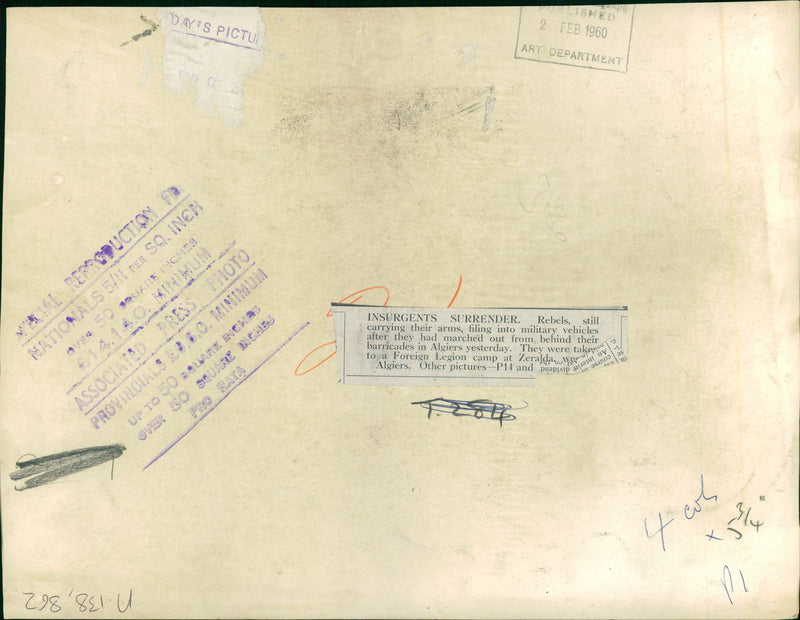 DAY'S PICTU
PUBLISHED
2 FEB 1960
ART DEPARTMENT
REPRODUCTION
NATIONALS 5/11 PER SQ. INCH
OVER 50 SQUARE INCHES
£14.14.0. MINIMUM
ASSOCIATED PRESS PHOTO
PROVINCIALS MINIMUM
UP TO 50 SQUARE INCHES
OVER 50 SQUARE INCHES
PRO RATA
INSURGENTS SURRENDER. Rebels, still
carrying their arms, filing into military vehicles
after they had marched out from behind their
barricades in Algiers yesterday. They were taken
to a Foreign Legion camp at Zeralda, we
Algiers. Other pictures—P14 and
dividend
An interim
course
T.284
4 cols
x 5 3/4"
P1
138,862